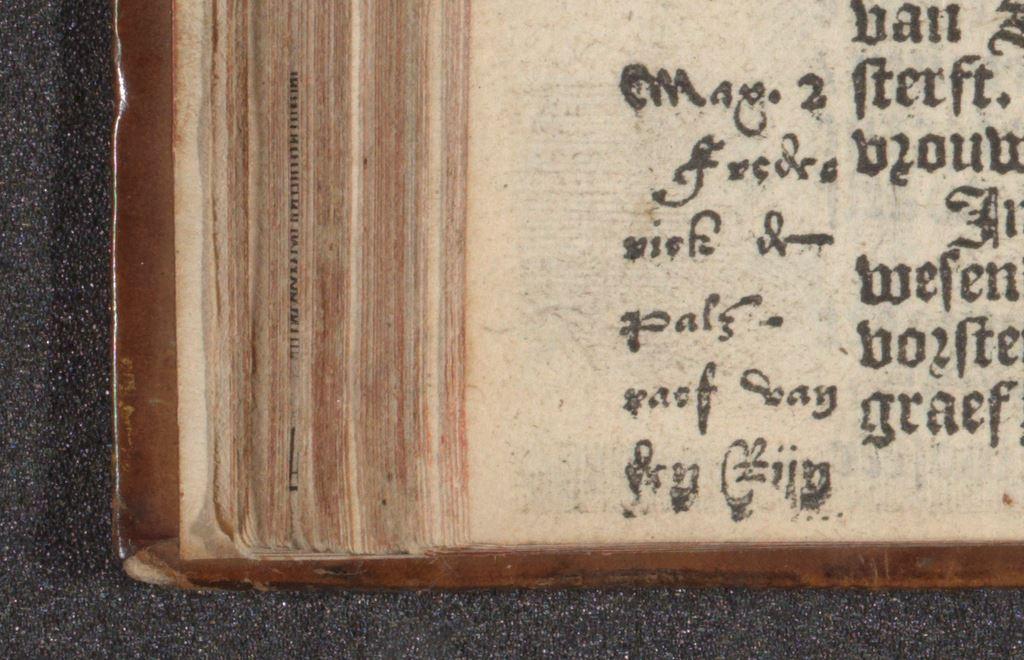 Max. 2
Frede-
rick de
Palz-
raef van
den Rijn
van
sterft.
vrouw
In
wesen
vorste
graef